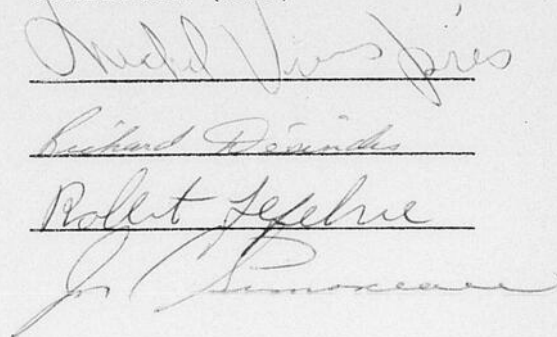 Michel Viens prés
Richard Désindes
Robert Lefebvre
J. C. Simoneau